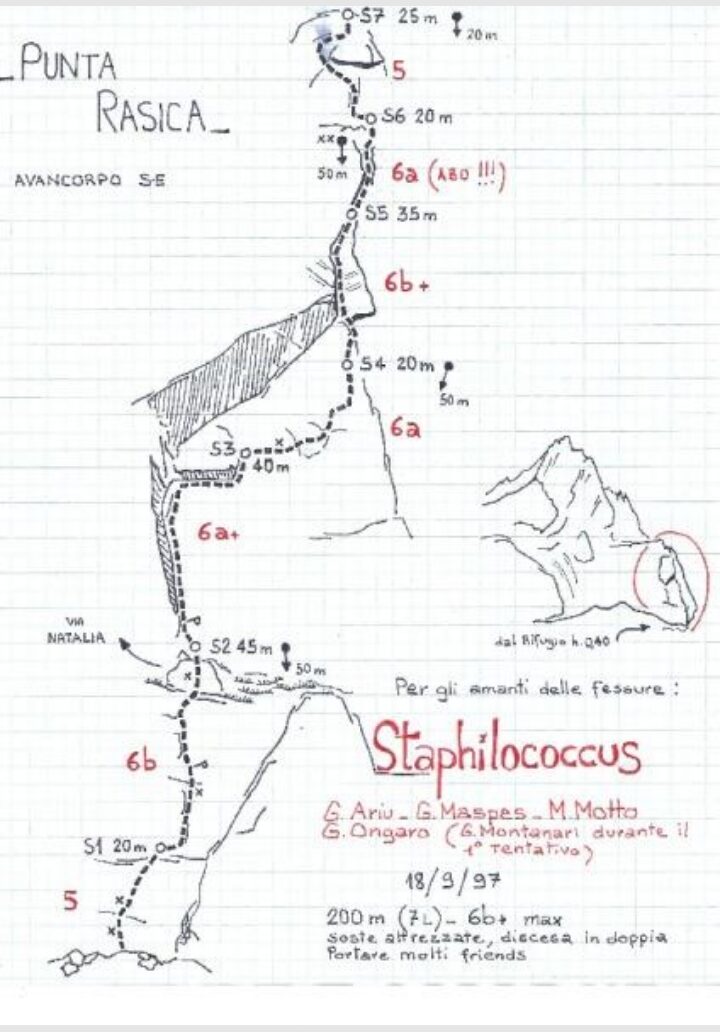 PUNTA
RASICA
AVANCORPO S-E
S7 25 m
20 m
5
S6 20 m
xx
50 m
6a (ABO !!!)
S5 35 m
6b+
S4 20 m
50 m
6a
S3
40 m
x
6a+
VIA
NATALIA
S2 45 m
50 m
x
6b
x
S1 20 m
5
x
x
dal Rifugio h. 0,40
Per gli amanti delle fessure :
Staphilococcus
G. Ariu - G. Maspes - M. Motto
G. Ongaro (G. Montanari durante il
1° tentativo)
18/9/97
200 m (7L) - 6b+ max
soste attrezzate, discesa in doppia
Portare molti friends